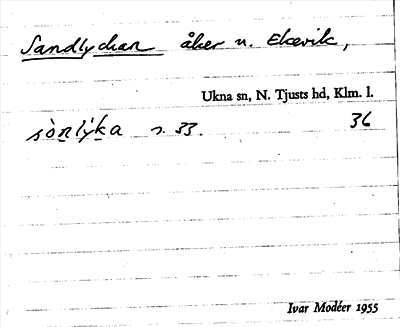 Sandlyckan åker n. Ekevik,
Ukna sn, N. Tjusts hd, Klm. l.
sònlýka s. 33. 36
Ivar Modéer 1955